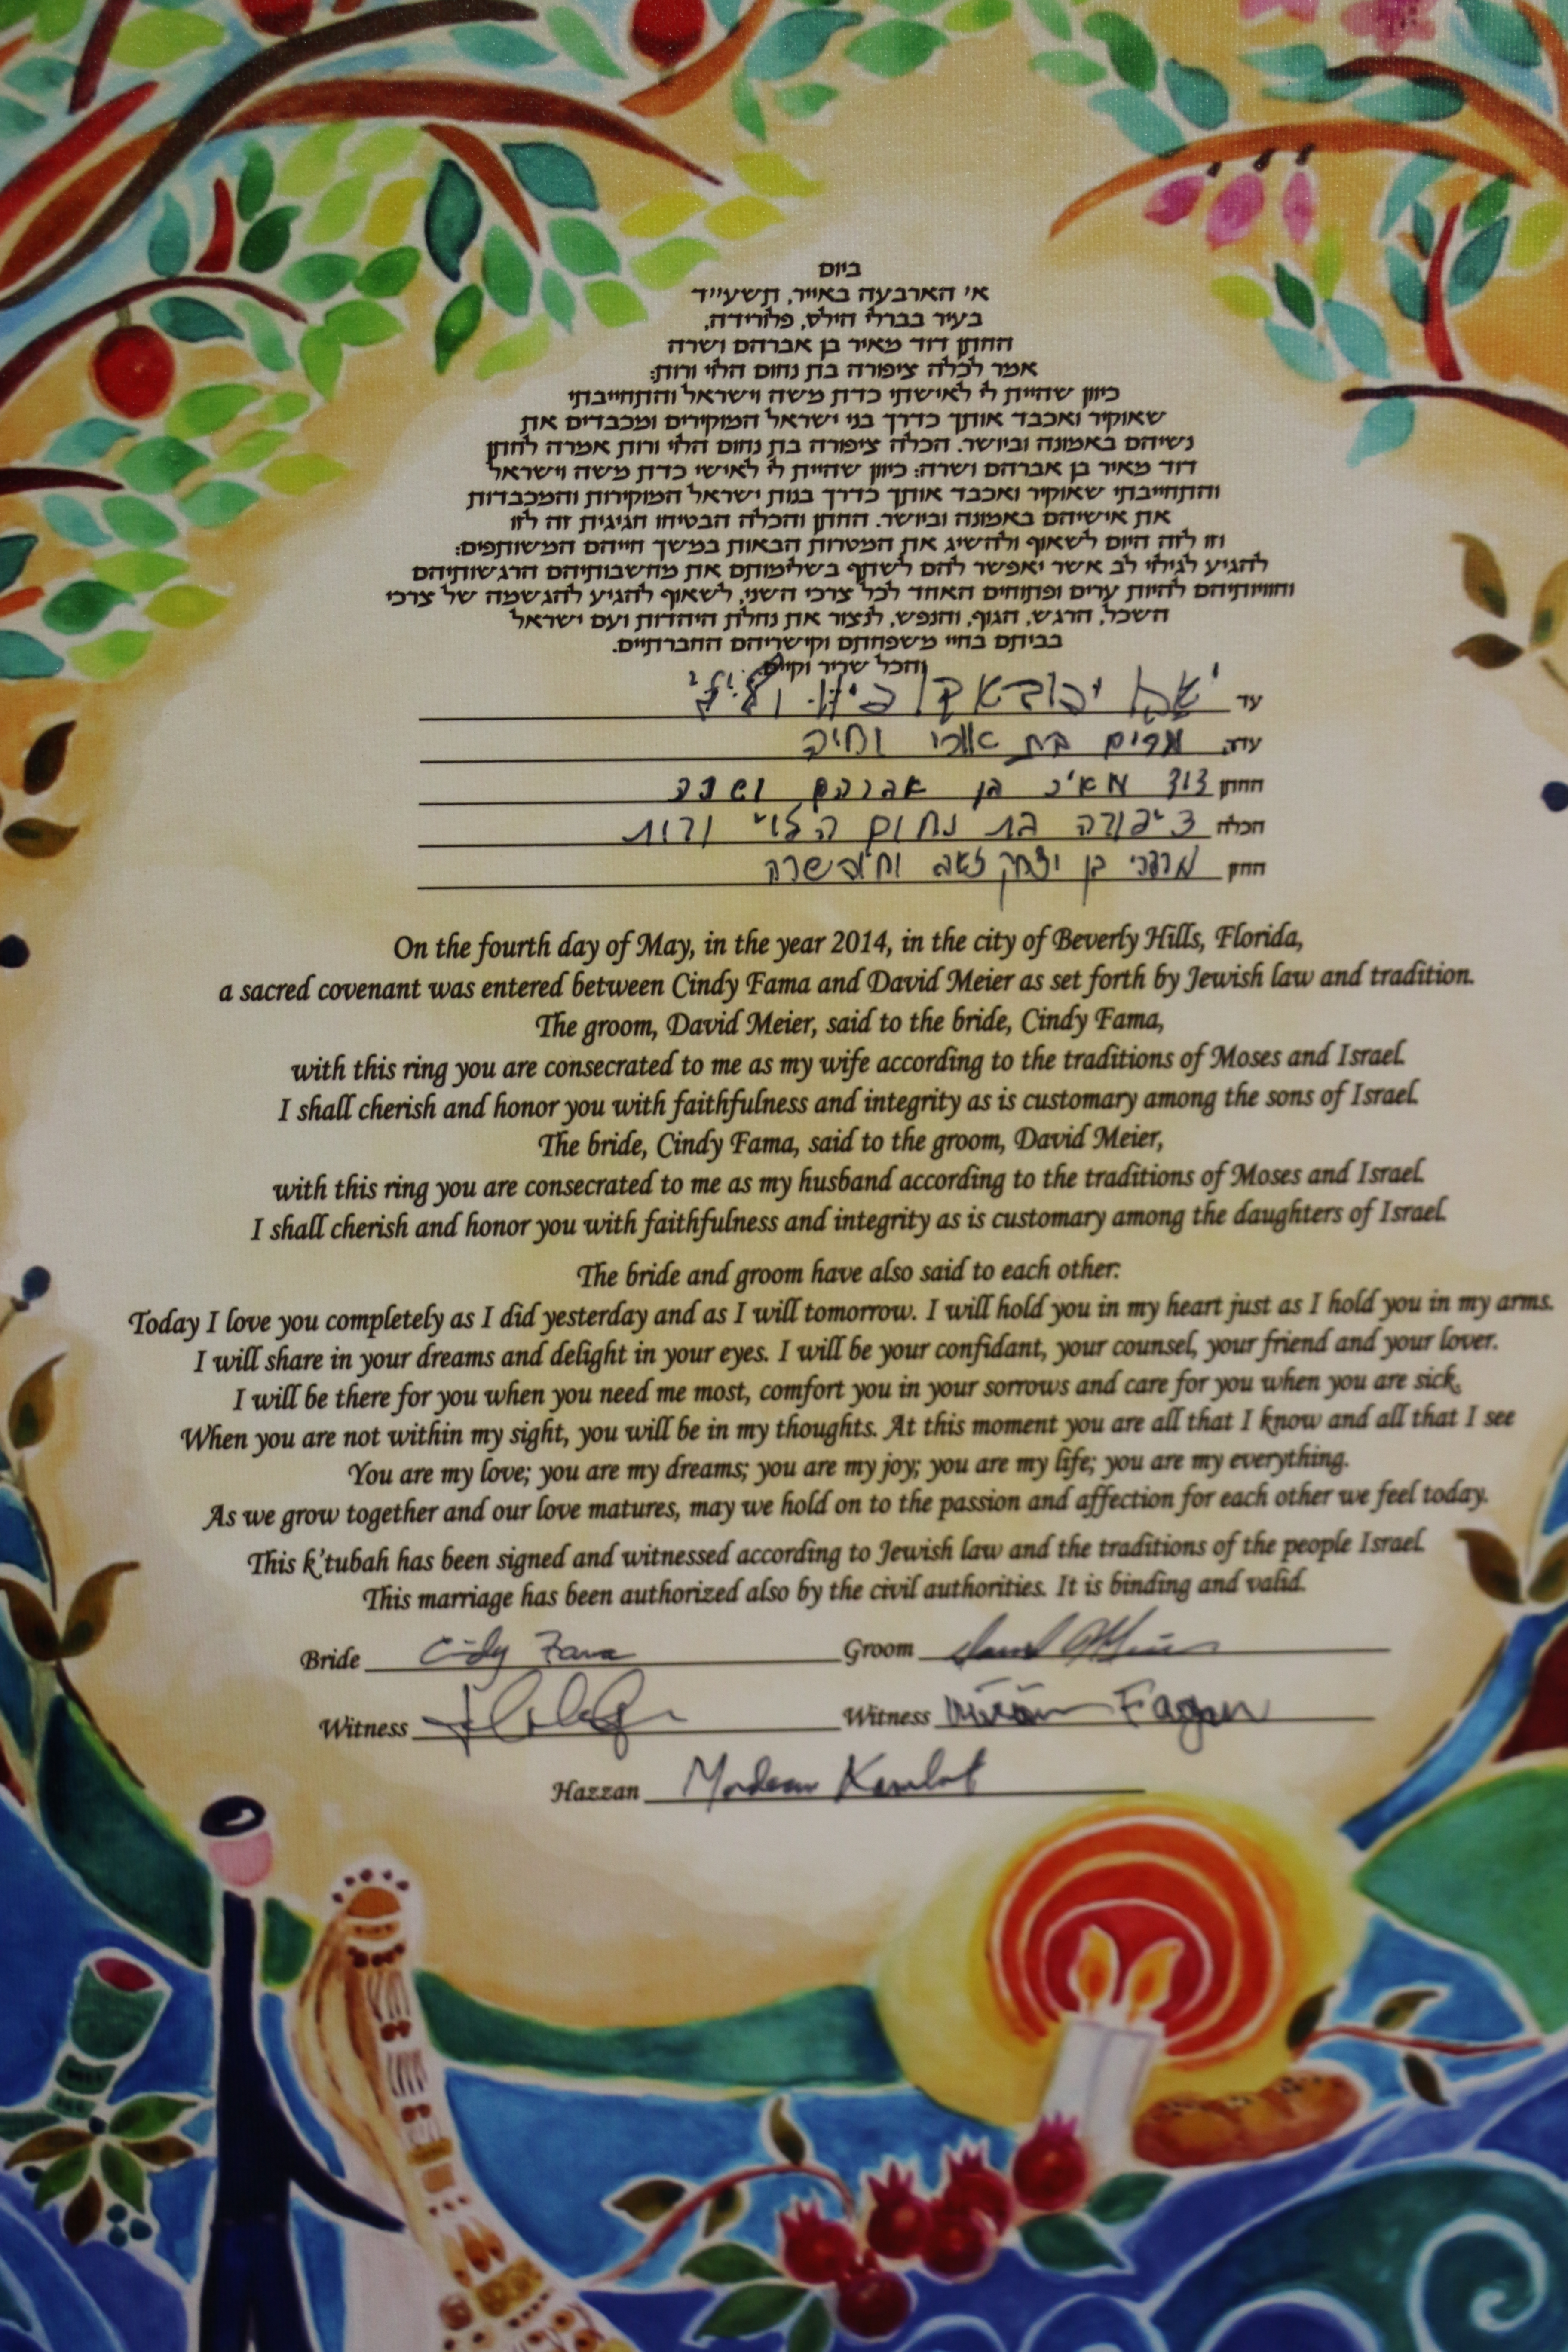 ביום
א' הארבעה באייר, תשע״ד
בעיר בברלי הילס, פלורידה,
החתן דוד מאיר בן אברהם ושרה
אמר לכלה ציפורה בת נחום הלוי ורות:
כיוון שהיית לי לאישתי כדת משה וישראל והתחייבתי
שאוקיר ואכבד אותך כדרך בני ישראל המוקירים ומכבדים את
נשיהם באמונה וביושר. הכלה ציפורה בת נחום הלוי ורות אמרה לחתן
דוד מאיר בן אברהם ושרה: כיוון שהיית לי לאישי כדת משה וישראל
והתחייבתי שאוקיר ואכבד אותך כדרך בנות ישראל המוקירות והמכבדות
את אישיהם באמונה וביושר. החתן והכלה הבטיחו חגיגית זה לזו
וזו לזה היום לשאוף ולהשיג את המטרות הבאות במשך חייהם המשותפים:
להגיע לגילוי לב אשר יאפשר להם לשתף בשלימותם את מחשבותיהם הרגשותיהם
וחוויותיהם להיות ערים ופתוחים האחד לכל צרכי השני, לשאוף להגיע להגשמה של צרכי
השכל, הרגש, הגוף, והנפש, לנצור את נחלת היהדות ועם ישראל
בביתם בחיי משפחתם וקישריהם החברתיים.
והכל שריר וקיים.
עד
עדה מרים בת ארי וחיה
החתן דוד מאיר בן אברהם ושרה
הכלה ציפורה בת נחום הלוי ורות
החזן מרדכי בן יצחק זאב
On the fourth day of May, in the year 2014, in the city of Beverly Hills, Florida,
a sacred covenant was entered between Cindy Fama and David Meier as set forth by Jewish law and tradition.
The groom, David Meier, said to the bride, Cindy Fama,
with this ring you are consecrated to me as my wife according to the traditions of Moses and Israel.
I shall cherish and honor you with faithfulness and integrity as is customary among the sons of Israel.
The bride, Cindy Fama, said to the groom, David Meier,
with this ring you are consecrated to me as my husband according to the traditions of Moses and Israel.
I shall cherish and honor you with faithfulness and integrity as is customary among the daughters of Israel.
The bride and groom have also said to each other:
Today I love you completely as I did yesterday and as I will tomorrow. I will hold you in my heart just as I hold you in my arms.
I will share in your dreams and delight in your eyes. I will be your confidant, your counsel, your friend and your lover.
I will be there for you when you need me most, comfort you in your sorrows and care for you when you are sick.
When you are not within my sight, you will be in my thoughts. At this moment you are all that I know and all that I see
You are my love; you are my dreams; you are my joy; you are my life; you are my everything.
As we grow together and our love matures, may we hold on to the passion and affection for each other we feel today.
This k'tubah has been signed and witnessed according to Jewish law and the traditions of the people Israel.
This marriage has been authorized also by the civil authorities. It is binding and valid.
Bride Cindy Fama Groom
Witness Witness Fagen
Hazzan